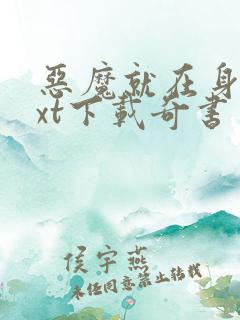 惡魔就在身
xt下載奇書
侯宇燕
未经同意禁止转载